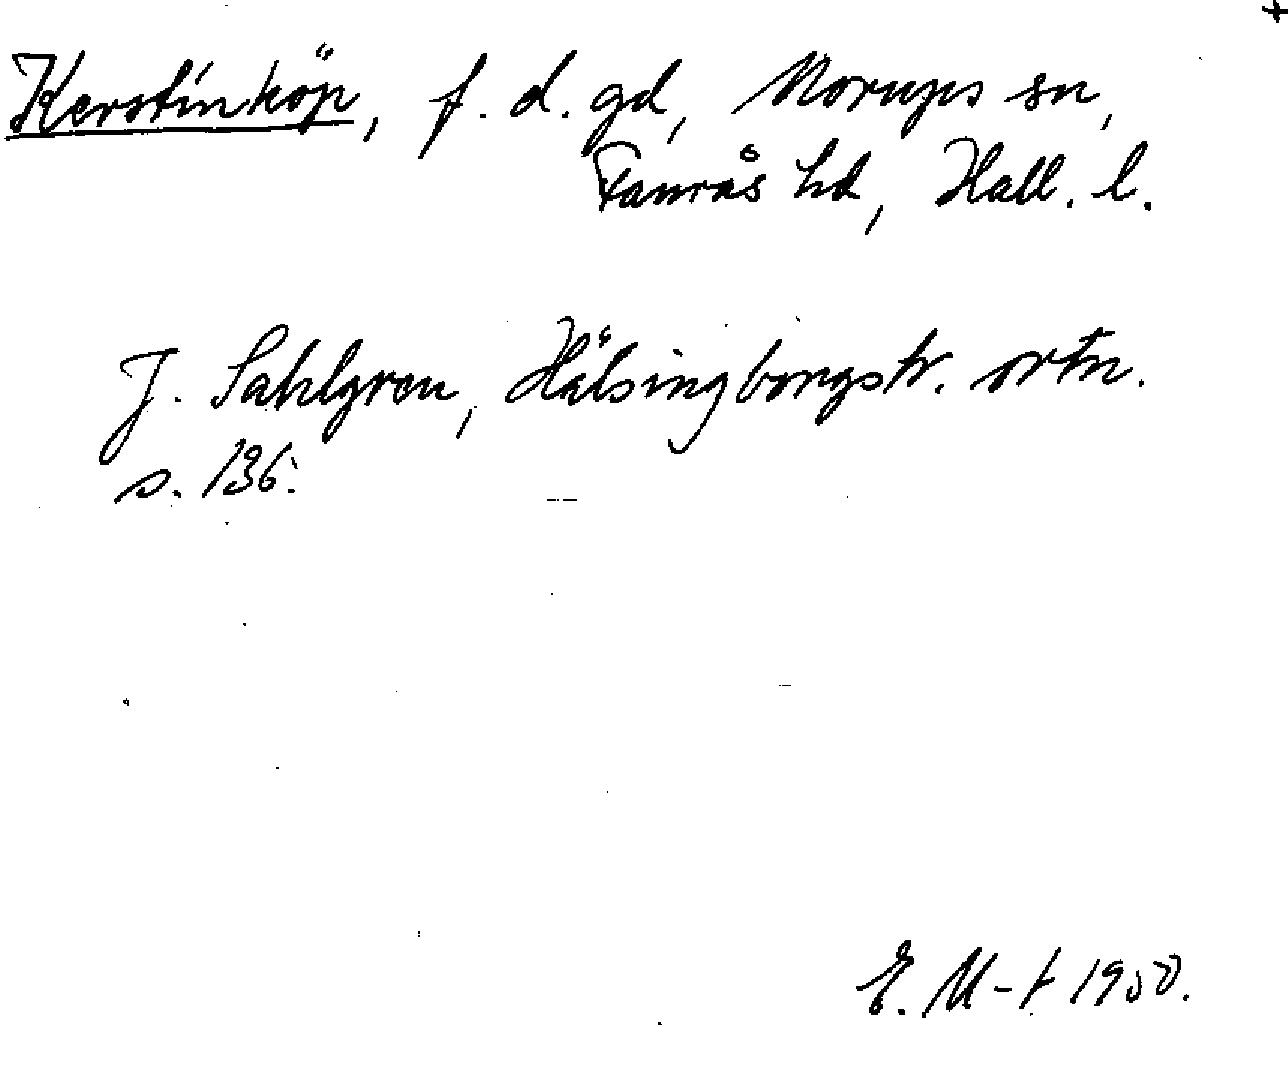 +
Kerstinköp, f. d. gd, Morups sn,
Faurås hd, Hall. l.
J. Sahlgren, Hälsingborgstr. ortn.
s. 136.
E. M-t 1950.